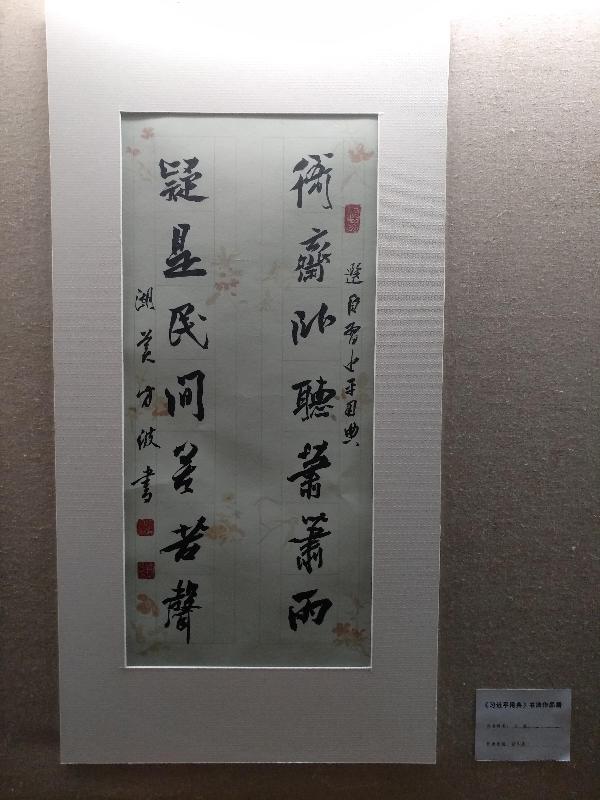 選自習近平用典
衙齋卧聽蕭蕭雨
疑是民間苦聲
湖美方波書
《习近平用典》书法作品展